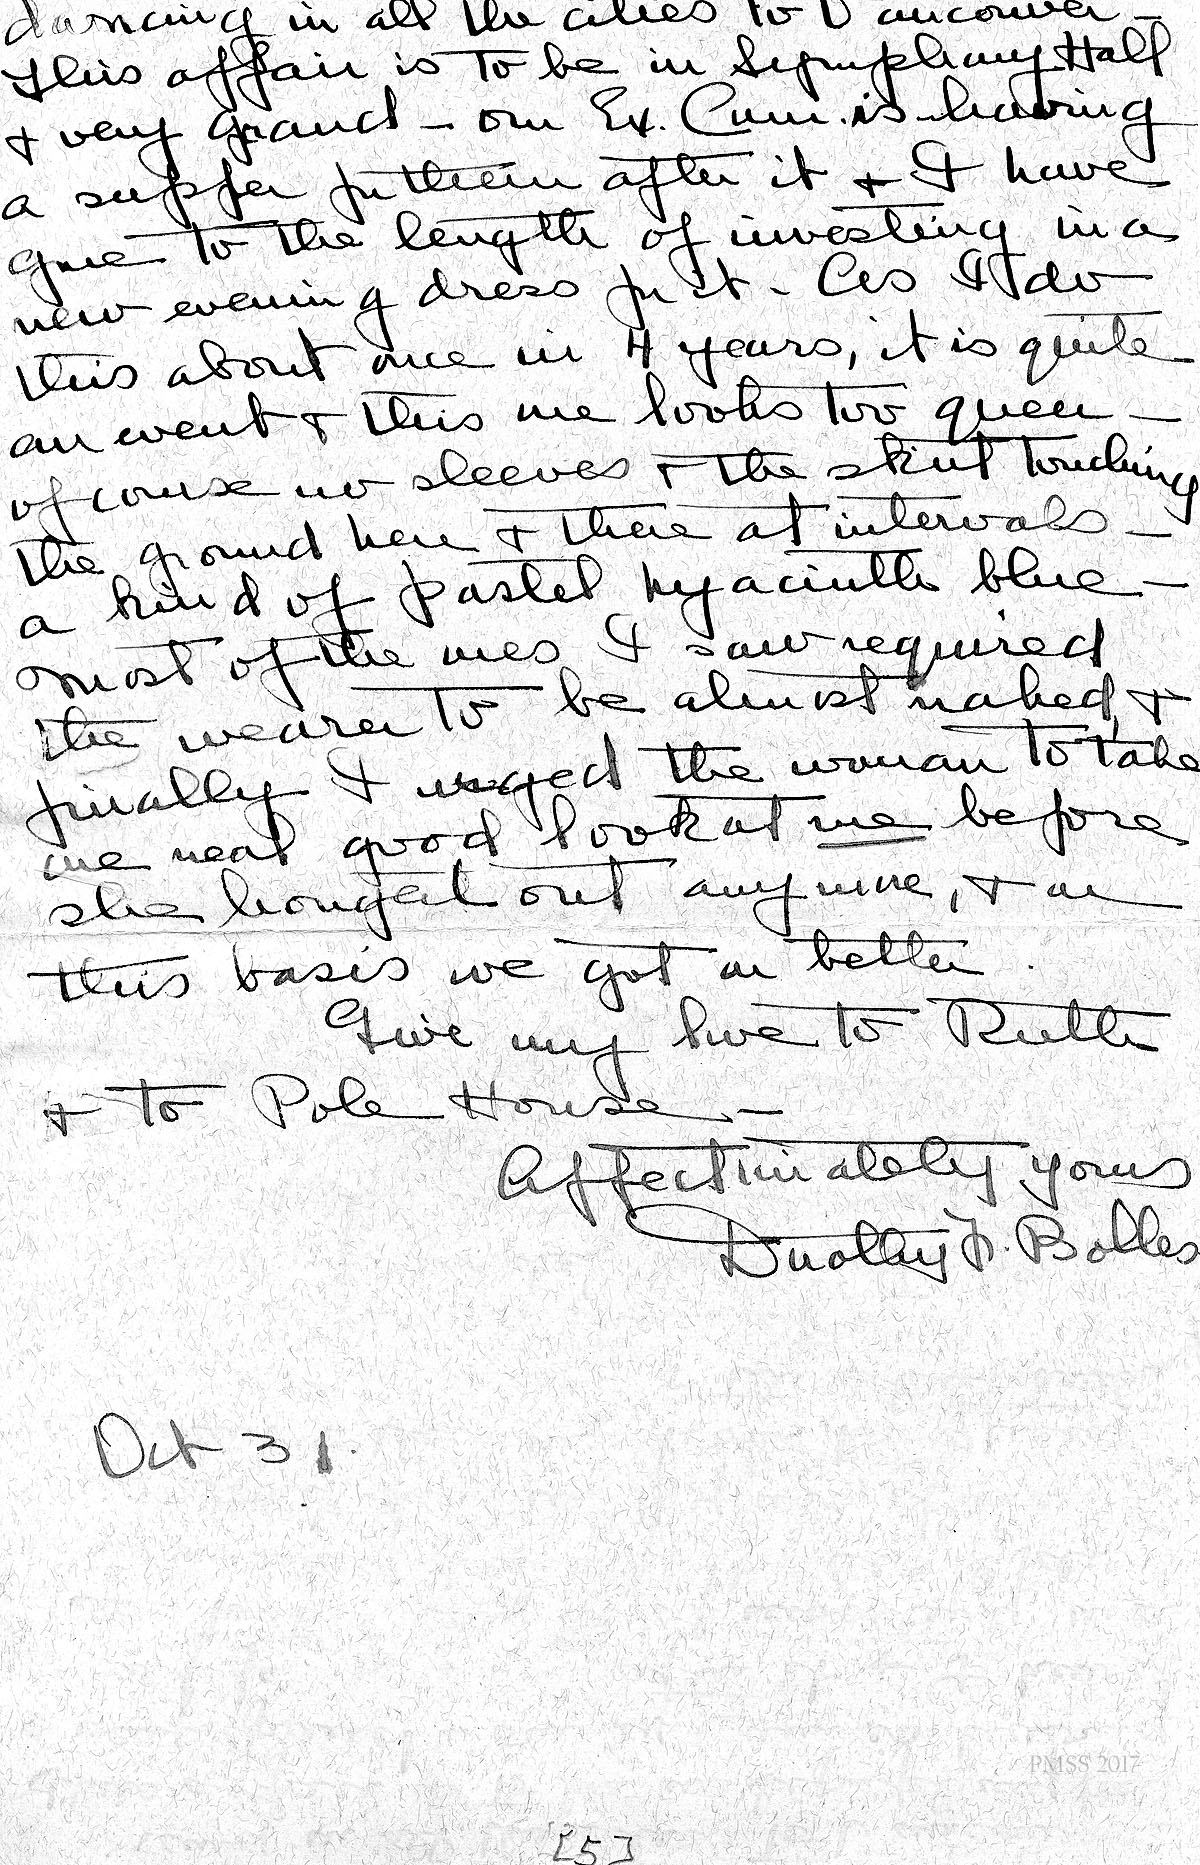 dancing in all the cities to Vancouver –
This affair is to be in Symphony Hall
+ very grand – our Ex. Com. is having
a supper for them after it + I have
gone to the length of investing in a
new evening dress for it. As I do
this about once in 4 years, it is quite
an event + this one looks too queer –
of course no sleeves + the skirt touching
the ground here + there at intervals –
a kind of pastel hyacinth blue –
most of the ones I saw required
the wearer to be almost naked, +
finally I urged the woman to take
one real good look at me before
she brought out any more, + on
this basis we got on better.
Give my love to Ruth
+ to Pole House –
Affectionately yours
Dorothy F. Bolles
Oct 31.
PMSS 2017
[5]